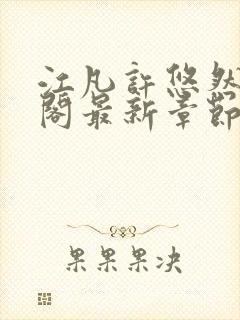 江凡許悠然
閣最新章節
果果果决